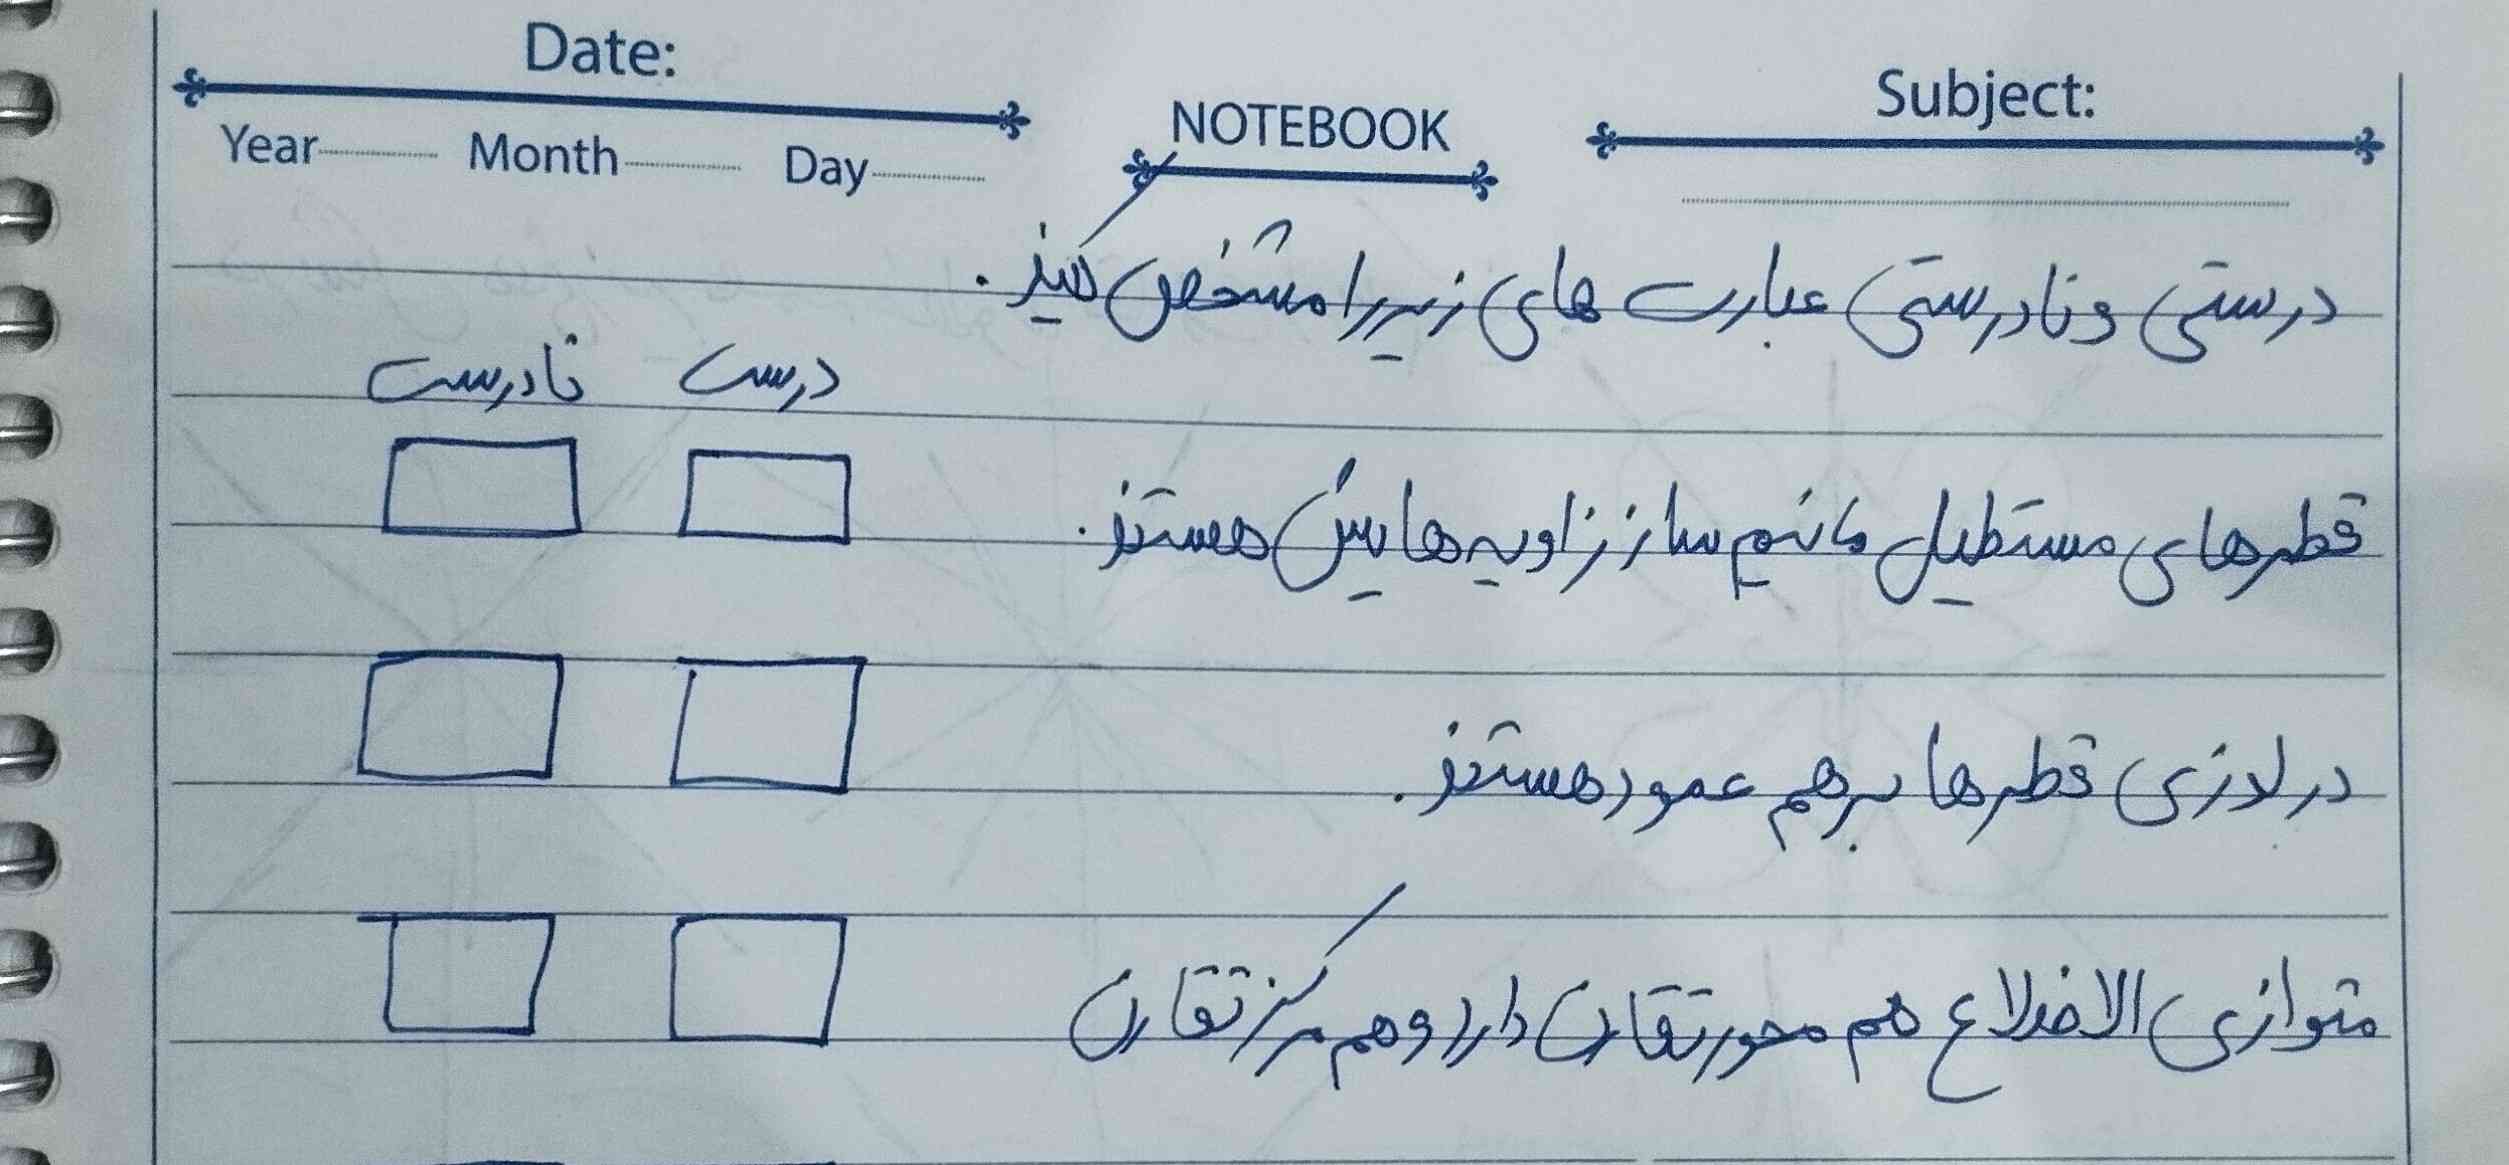 Date:
Subject:
NOTEBOOK
Year Month Day
درستی و نادرستی عبارت های زیر را مشخص کنید.
درست نادرست
قطرهای مستطیل نیم ساز زاویه هایش هستند.
در لوزی قطرها بر هم عمود هستند.
متوازی الاضلاع هم محور تقارن دارد و هم مرکز تقارن